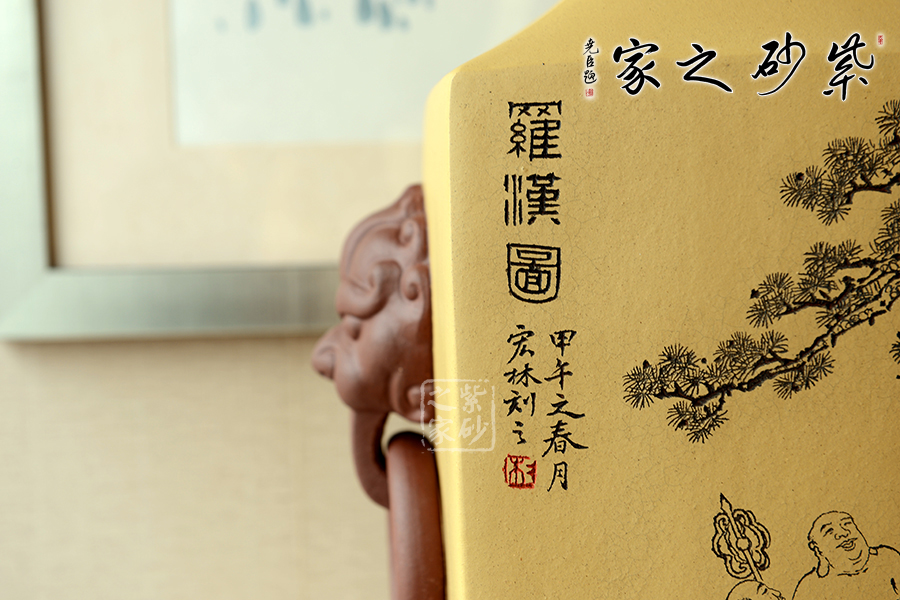 紫砂之家
尧臣题
羅漢圖
甲午之春月
宏林刻之
林
紫砂之家